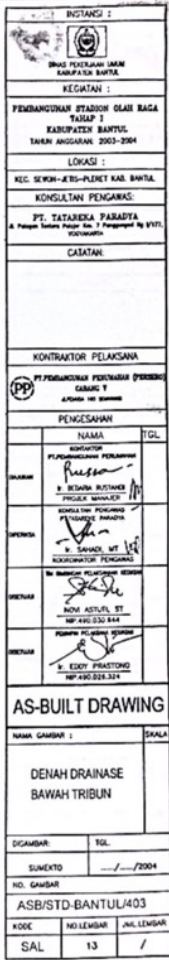 INSTANSI :
DINAS PEKERJAAN UMUM
KABUPATEN BANTUL
KEGIATAN :
PEMBANGUNAN STADION OLAH RAGA
TAHAP I
KABUPATEN BANTUL
TAHUN ANGGARAN: 2003-2004
LOKASI :
KEC. SEWON-JETIS-PLERET KAB. BANTUL
KONSULTAN PENGAWAS:
PT. TATAREKA PARADYA
YOGYAKARTA
CATATAN:
KONTRAKTOR PELAKSANA
PP
PT.PEMBANGUNAN PERUMAHAN (PERSERO)
CABANG V
PENGESAHAN
NAMA TGL
KONTRAKTOR
PT.PEMBANGUNAN PERUMAHAN
DIAJUKAN
Ir. BEDARIA RUSTANDI
PROJEK MANAJER
KONSULTAN PENGAWAS
PT.TATAREKA PARADYA
DIPERIKSA
Ir. SAHADI, MT
KOORDINATOR PENGAWAS
DISETUJUI
NOVI ASTUTI, ST
NIP.490.030.944
DISETUJUI
Ir. EDDY PRASTONO
NIP.490.026.324
AS-BUILT DRAWING
NAMA GAMBAR : SKALA
DENAH DRAINASE
BAWAH TRIBUN
DIGAMBAR: TGL.
SUMEKTO ..../..../2004
NO. GAMBAR
ASB/STD-BANTUL/403
KODE NO.LEMBAR JML.LEMBAR
SAL 13 /